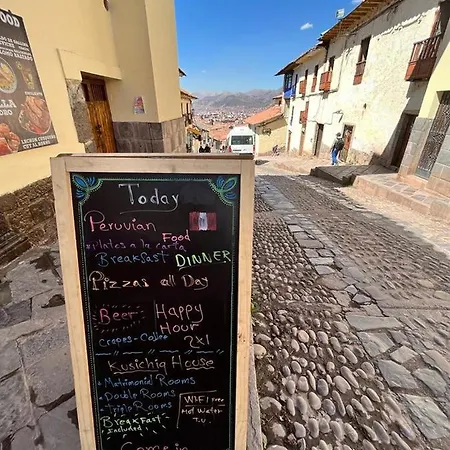 FOOD
Today
Peruvian
Food
platos a la carta
Breakfast DINNER
Pizzas all Day
Beer Happy
Hour
Crepes - Coffee 2x1
Kusichiq House
- Matrimonial Rooms
- Double Rooms
- Triple Rooms
Breakfast
Included
WIFI Free
Hot Water
T.V
Come in